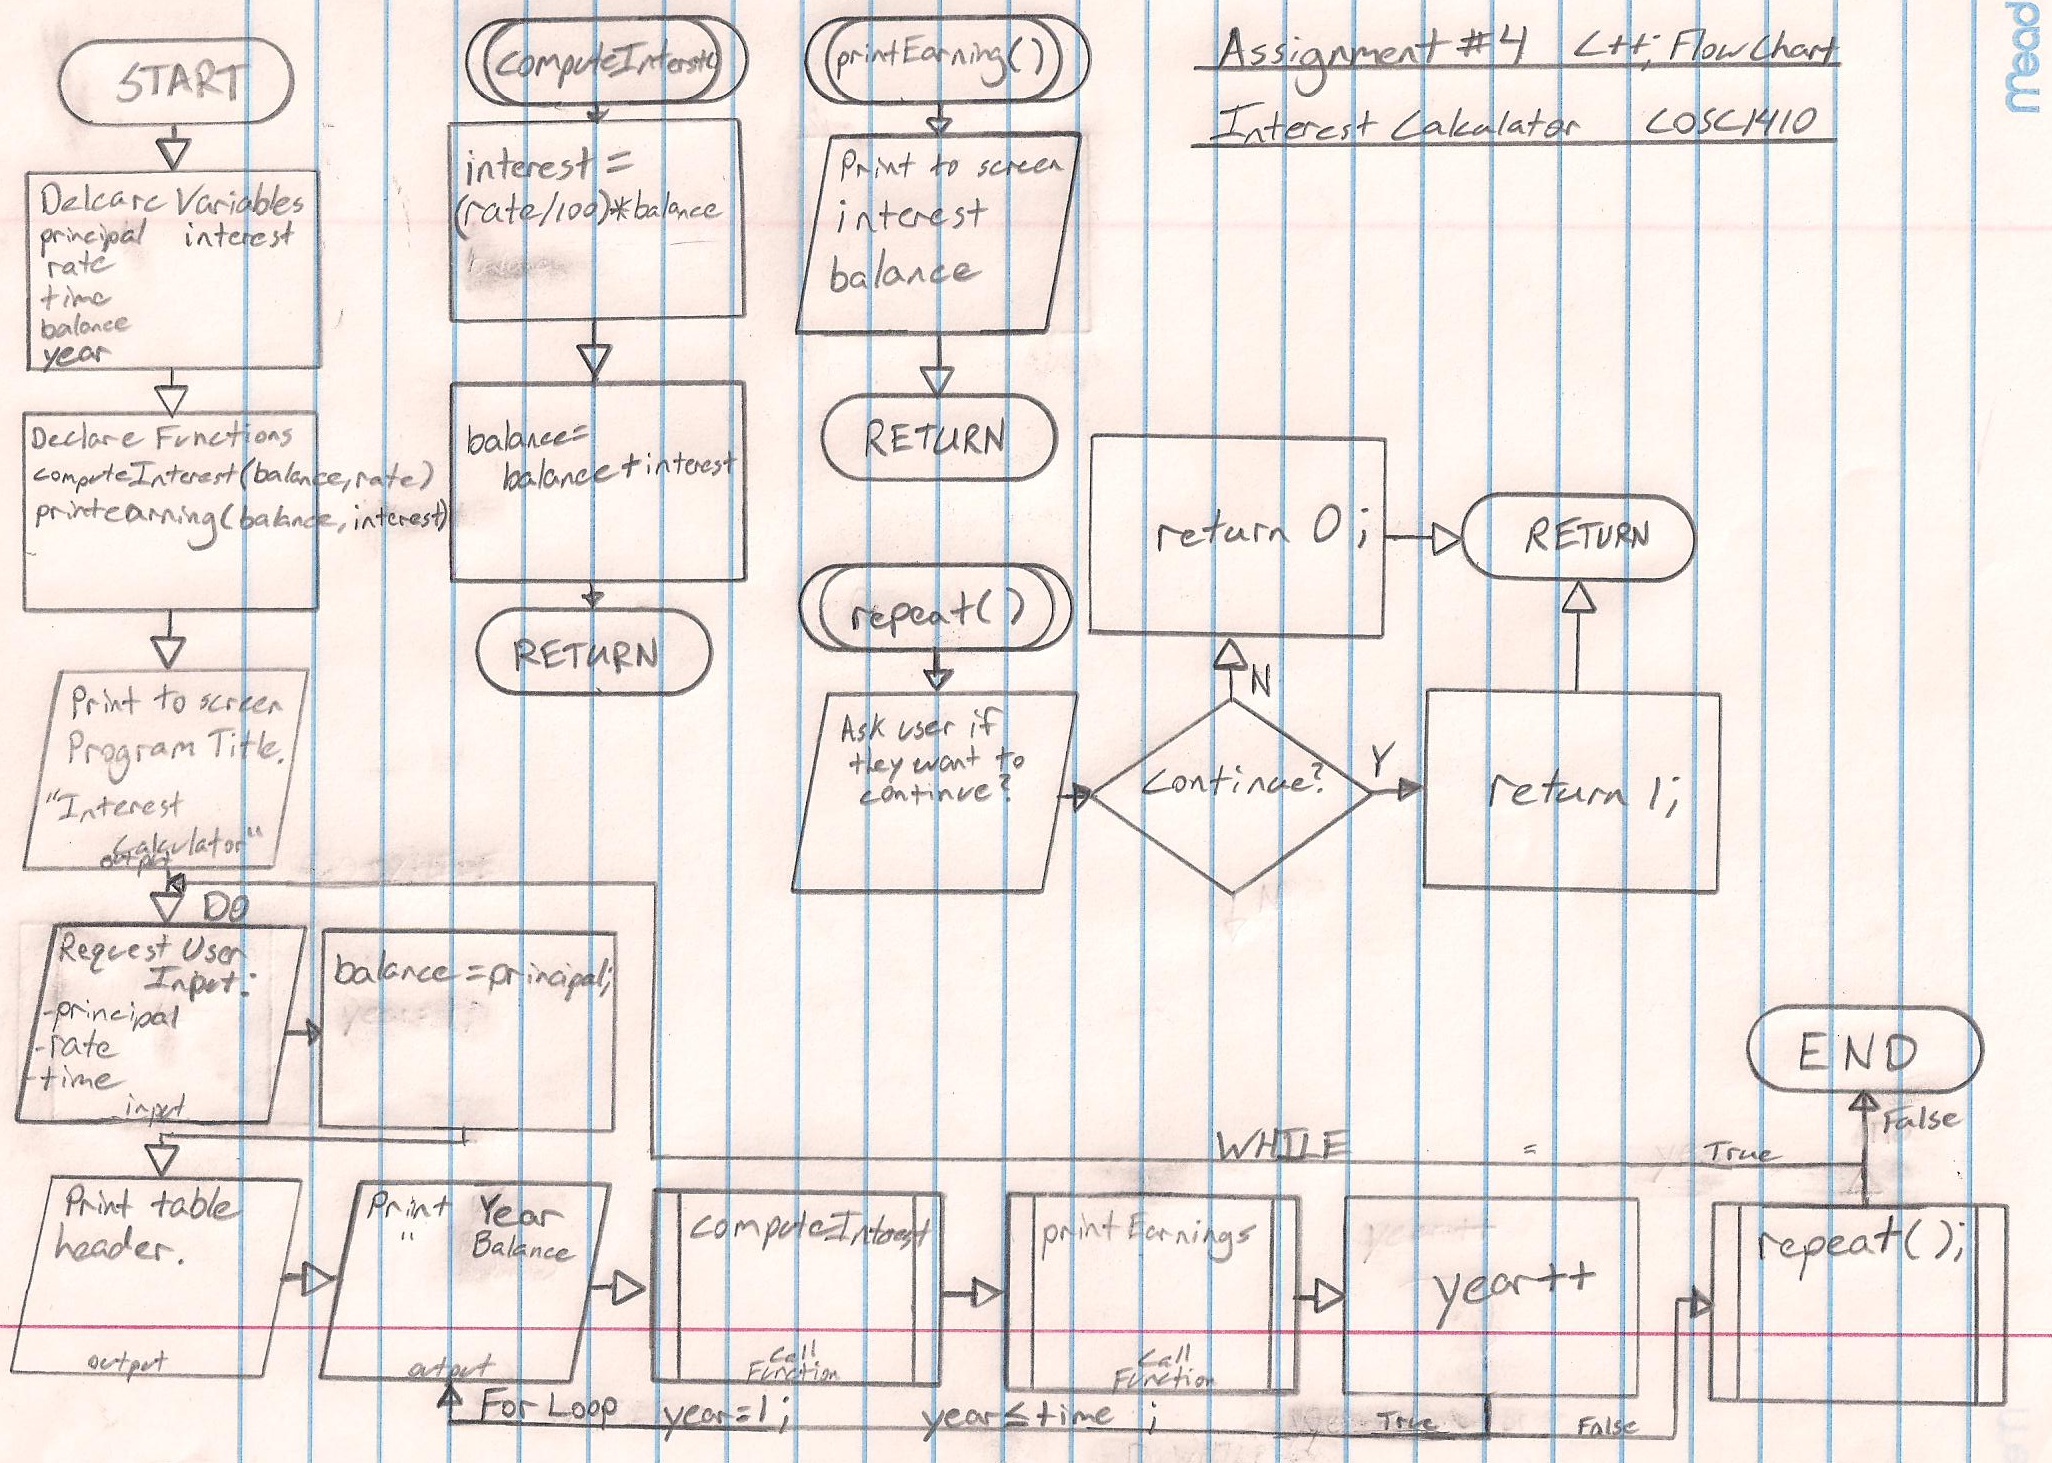 Assignment #4 C++; FlowChart
Interest Calculator COSC1410
Mead
START
Delcare Variables
principal interest
rate
time
balance
year
Declare Functions
computeInterest(balance,rate)
printearning(balance, interest)
Print to screen
Program Title.
"Interest
Calculator"
output
DO
Request User
Input:
-principal
-rate
-time
input
balance = principal;
Print table
header.
output
Print Year
" Balance
output
computeInterest
Call
Function
printEarnings
Call
Function
year++
repeat();
For Loop year=1; year≤time ; True False
WHILE = True
False
END
computeInterst()
interest =
(rate/100)*balance
balance=
balance+interest
RETURN
printEarning()
Print to screen
interest
balance
RETURN
repeat()
Ask user if
they want to
continue?
Continue?
N
return 0;
Y
return 1;
RETURN